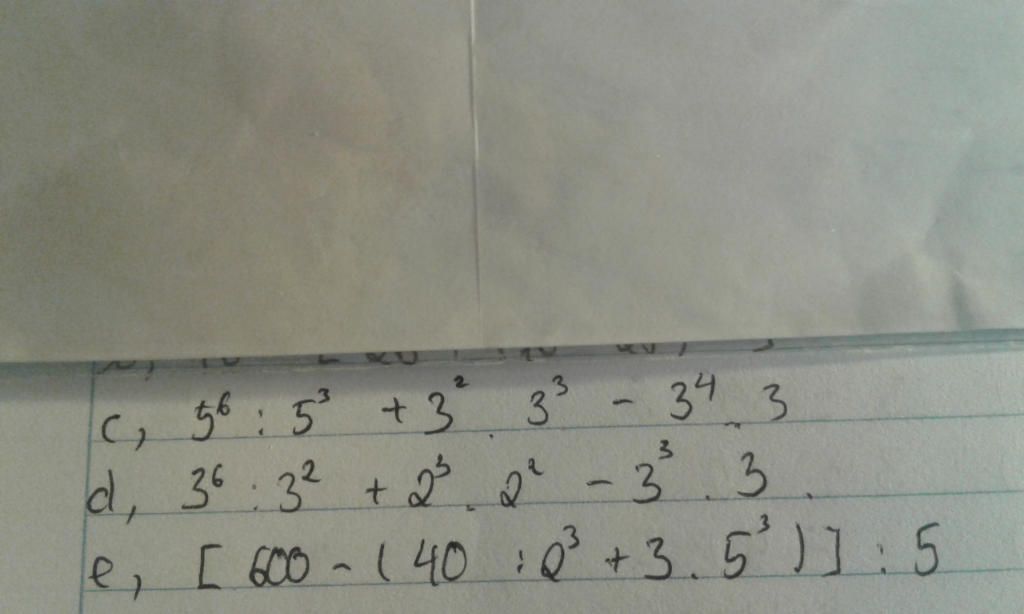 c, 5⁶ : 5³ + 3² . 3³ - 3⁴ . 3
d, 3⁶ : 3² + 2³ . 2² - 3³ . 3 .
e, [ 600 - ( 40 : 2³ + 3 . 5³ ) ] : 5